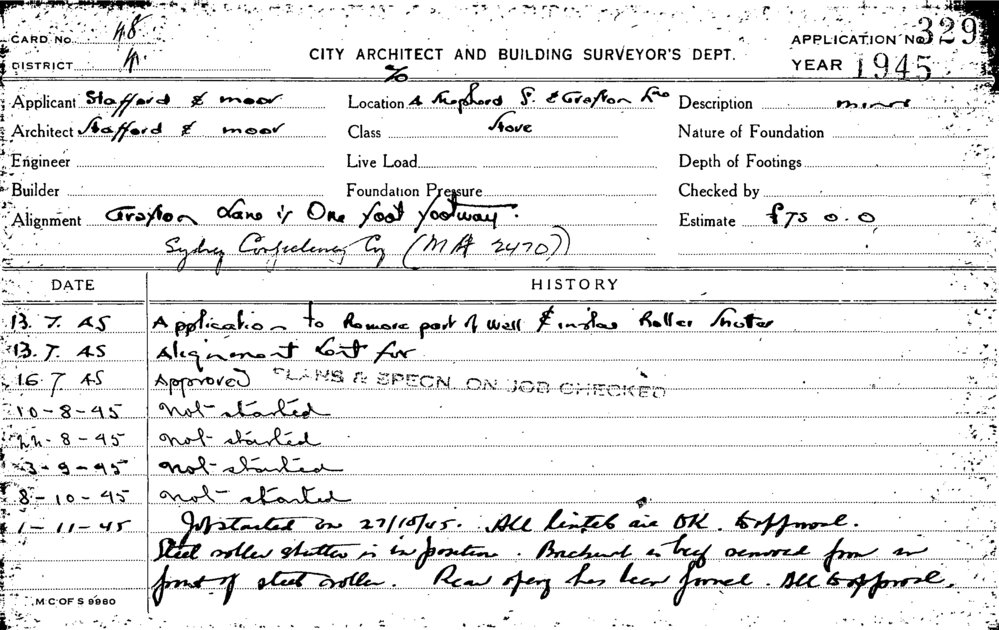 CARD No. 48
APPLICATION No 329
DISTRICT
CITY ARCHITECT AND BUILDING SURVEYOR'S DEPT.
YEAR 1945
Applicant Stafford & moor
Location Shepherd S. & Grafton Lne
Description minor
Architect Stafford & moor
Class Store
Nature of Foundation
Engineer
Live Load
Depth of Footings
Builder
Foundation Pressure
Checked by
Alignment Grafton Lane is One foot footway.
Estimate £75 0.0
Sydney Confectionery Coy (MA 2470)
DATE HISTORY
13. 7. 45 Application to Remove part of wall & instal Roller Shuter
13. 7. 45 Alignment sent for
16. 7 45 Approved PLANS & SPECN. ON JOB CHECKED
10-8-45 not started
22-8-45 not started
3-9-45 not started
8-10-45 not started
1-11-45 Job started on 27/10/45. All lintels are OK. to approval.
Steel roller shutter is in position. Brickwork is being removed from in
front of steel roller. Rear openg has been formed. All to approval.
M C OF S 9960